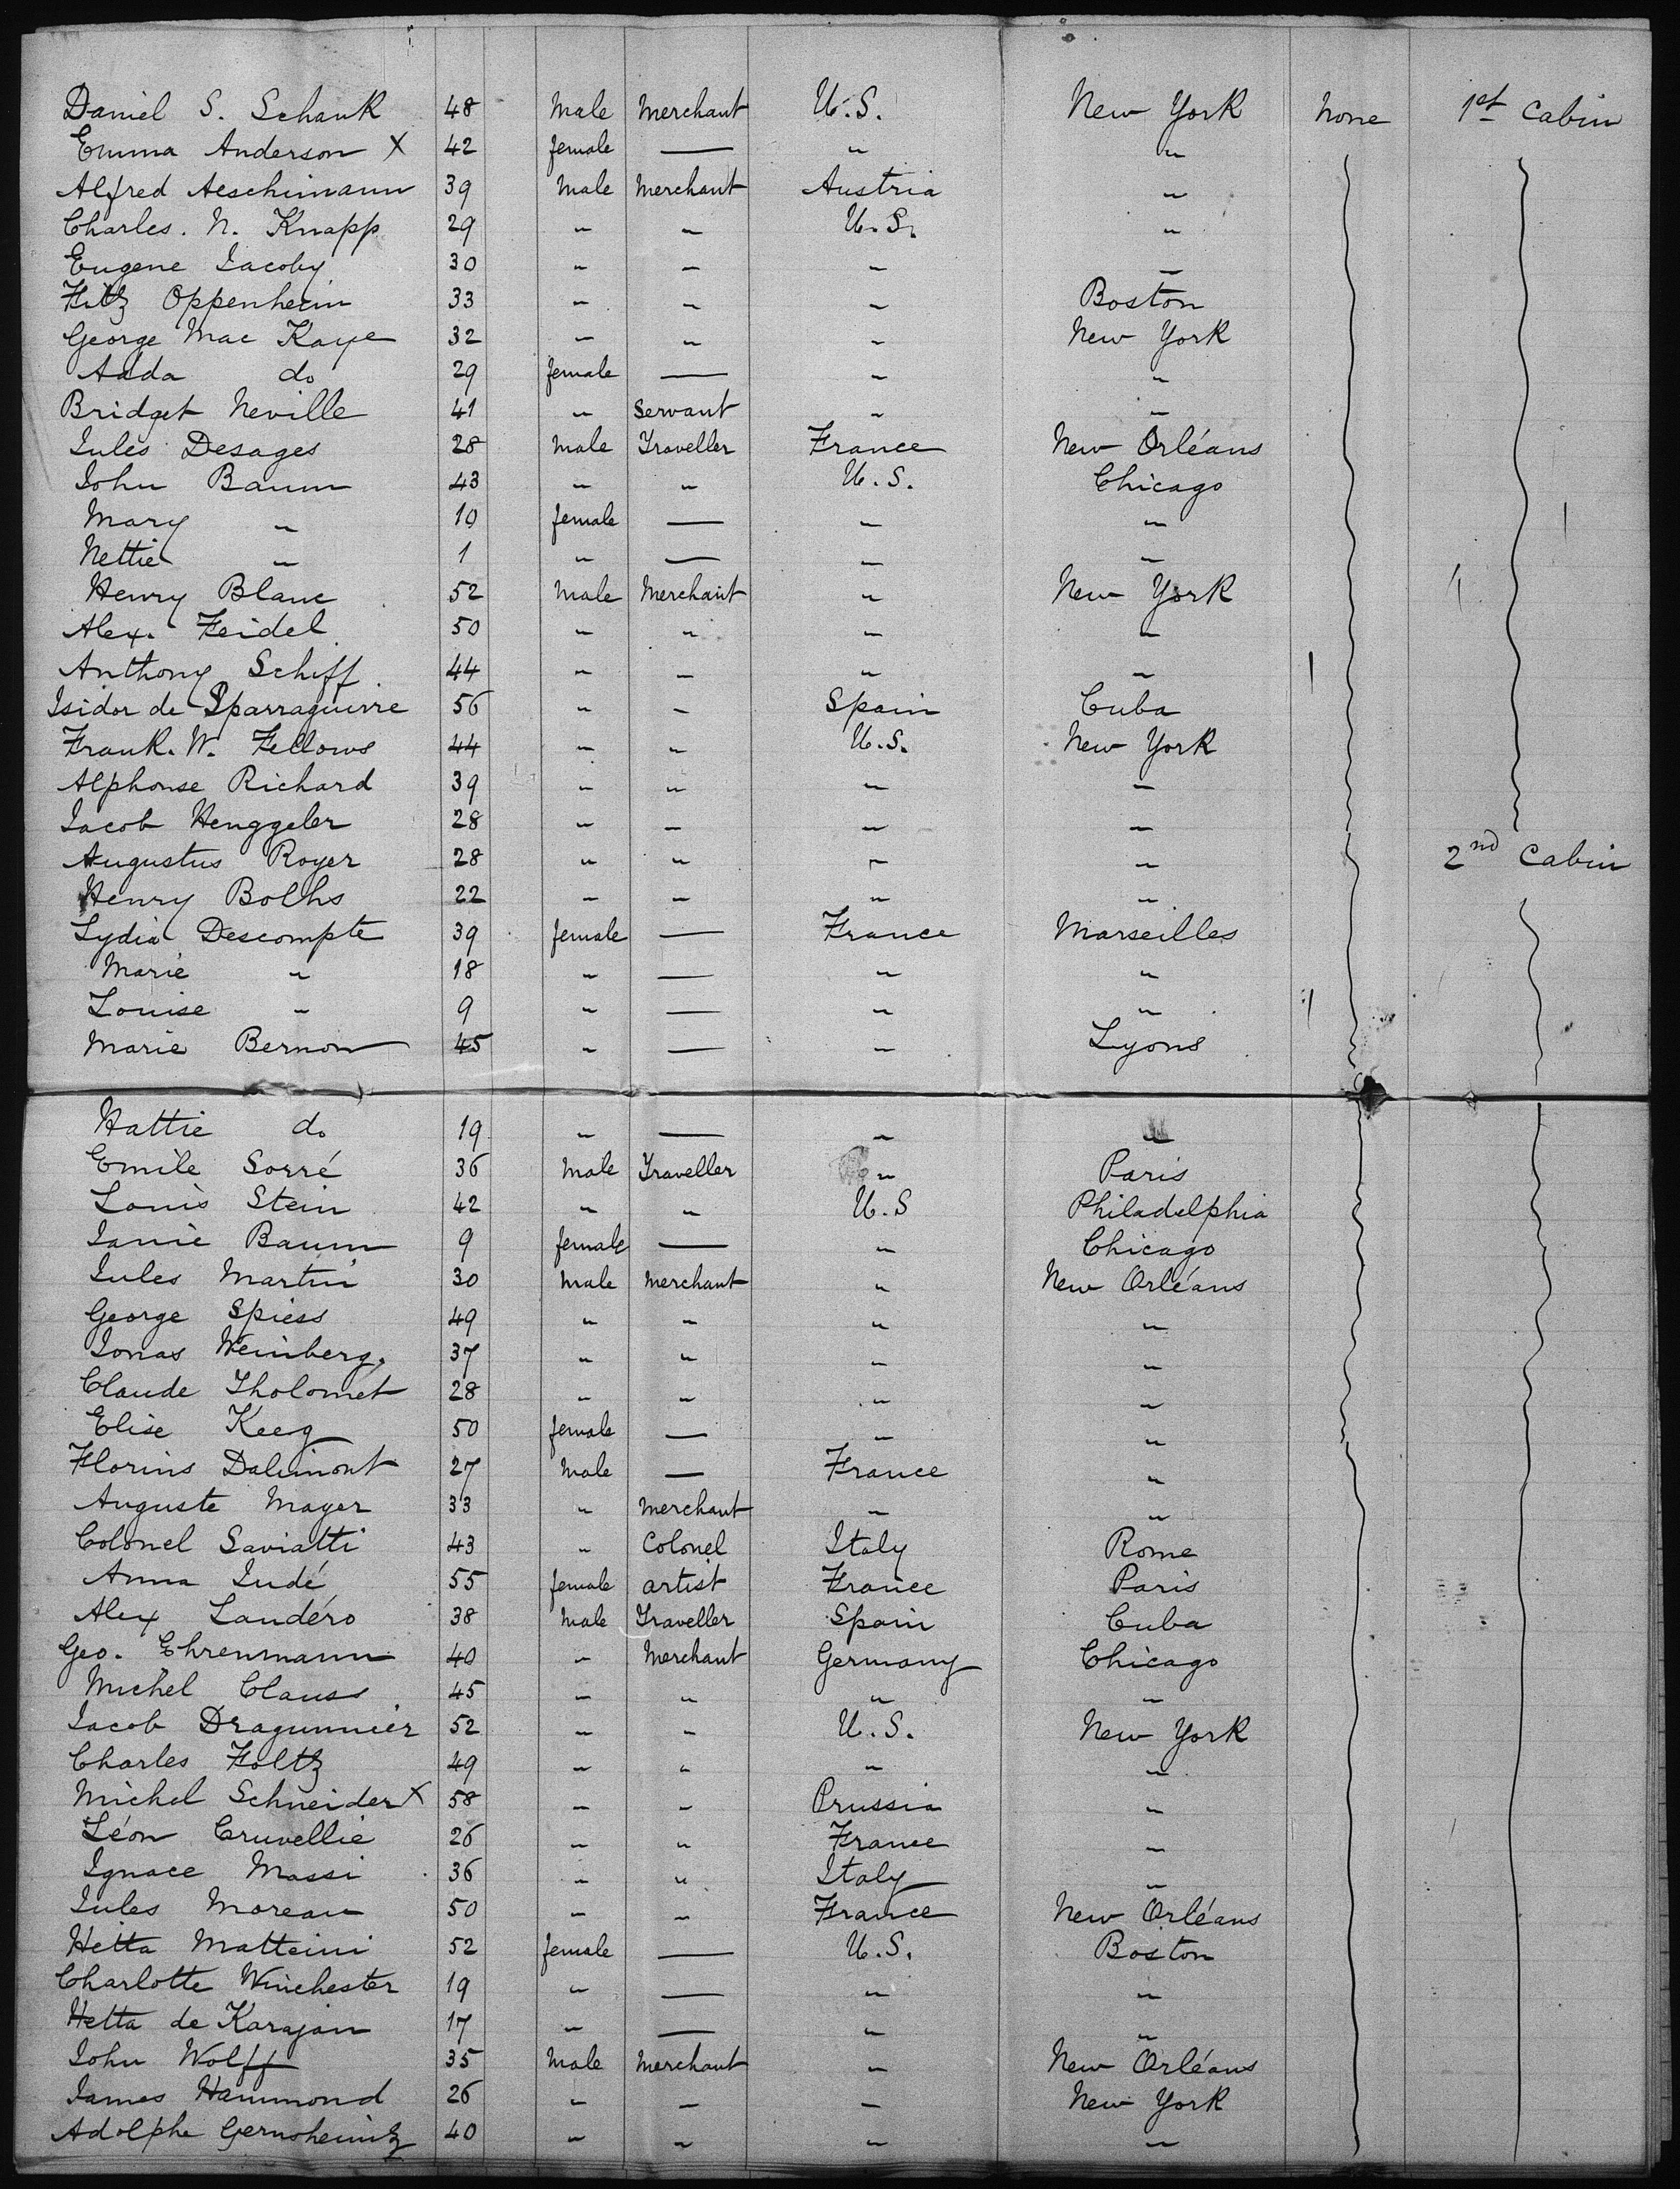 Daniel S. Schank 48 Male Merchant U.S. New York None 1st Cabin
Emma Anderson X 42 female — " "
Alfred Aeschimann 39 Male Merchant Austria "
Charles. N. Knapp 29 " " U.S. "
Eugene Jacoby 30 " " " "
Fritz Oppenheim 33 " " " Boston
George Mac Kaye 32 " " " New York
Adda do 29 female — " "
Bridget Neville 41 " Servant " "
Jules Desages 28 Male Traveller France New Orléans
John Baum 43 " " U.S. Chicago
Mary " 19 female — " "
Nettie " 1 " — " "
Henry Blanc 52 Male Merchant " New York
Alex. Feidel 50 " " " "
Anthony Schiff 44 " " " "
Isidor de Sparraguirre 56 " " Spain Cuba
Frank. W. Fellows 44 " " U.S. New York
Alphonse Richard 39 " " " "
Jacob Henggeler 28 " " " "
Augustus Royer 28 " " " " 2nd Cabin
Henry Bolhs 22 " " " "
Lydia Descompte 39 female — France Marseilles
Marie " 18 " — " "
Louise " 9 " — " "
Marie Bernon 45 " — " Lyons
Hattie do 19 " — " "
Emile Sorré 36 Male Traveller " Paris
Louis Stein 42 " " U.S Philadelphia
Janie Baum 9 female — " Chicago
Jules Martin 30 Male Merchant " New Orléans
George Spiess 49 " " " "
Jonas Weinberg. 37 " " " "
Claude Tholomet 28 " " " "
Elise Keeg 50 female — " "
Florins Dalimont 27 Male — France "
Auguste Mayer 33 " Merchant " "
Colonel Saviatti 43 " Colonel Italy Rome
Anna Judé 55 female artist France Paris
Alex Landéro 38 Male Traveller Spain Cuba
Geo. Ehrenmann 40 " Merchant Germany Chicago
Michel Clauss 45 " " " "
Jacob Dragunnier 52 " " U.S. New York
Charles Foltz 49 " " " "
Michel Schneider X 58 " " Prussia "
Léon Cruvellie 26 " " France "
Ignace Massi 36 " " Italy "
Jules Moreau 50 " " France New Orléans
Hetta Matteini 52 female — U.S. Boston
Charlotte Winchester 19 " — " "
Hetta de Karajan 17 " — " "
John Wolff 35 Male Merchant " New Orléans
James Hammond 26 " " " New York
Adolphe Gernsheimz 40 " " " "